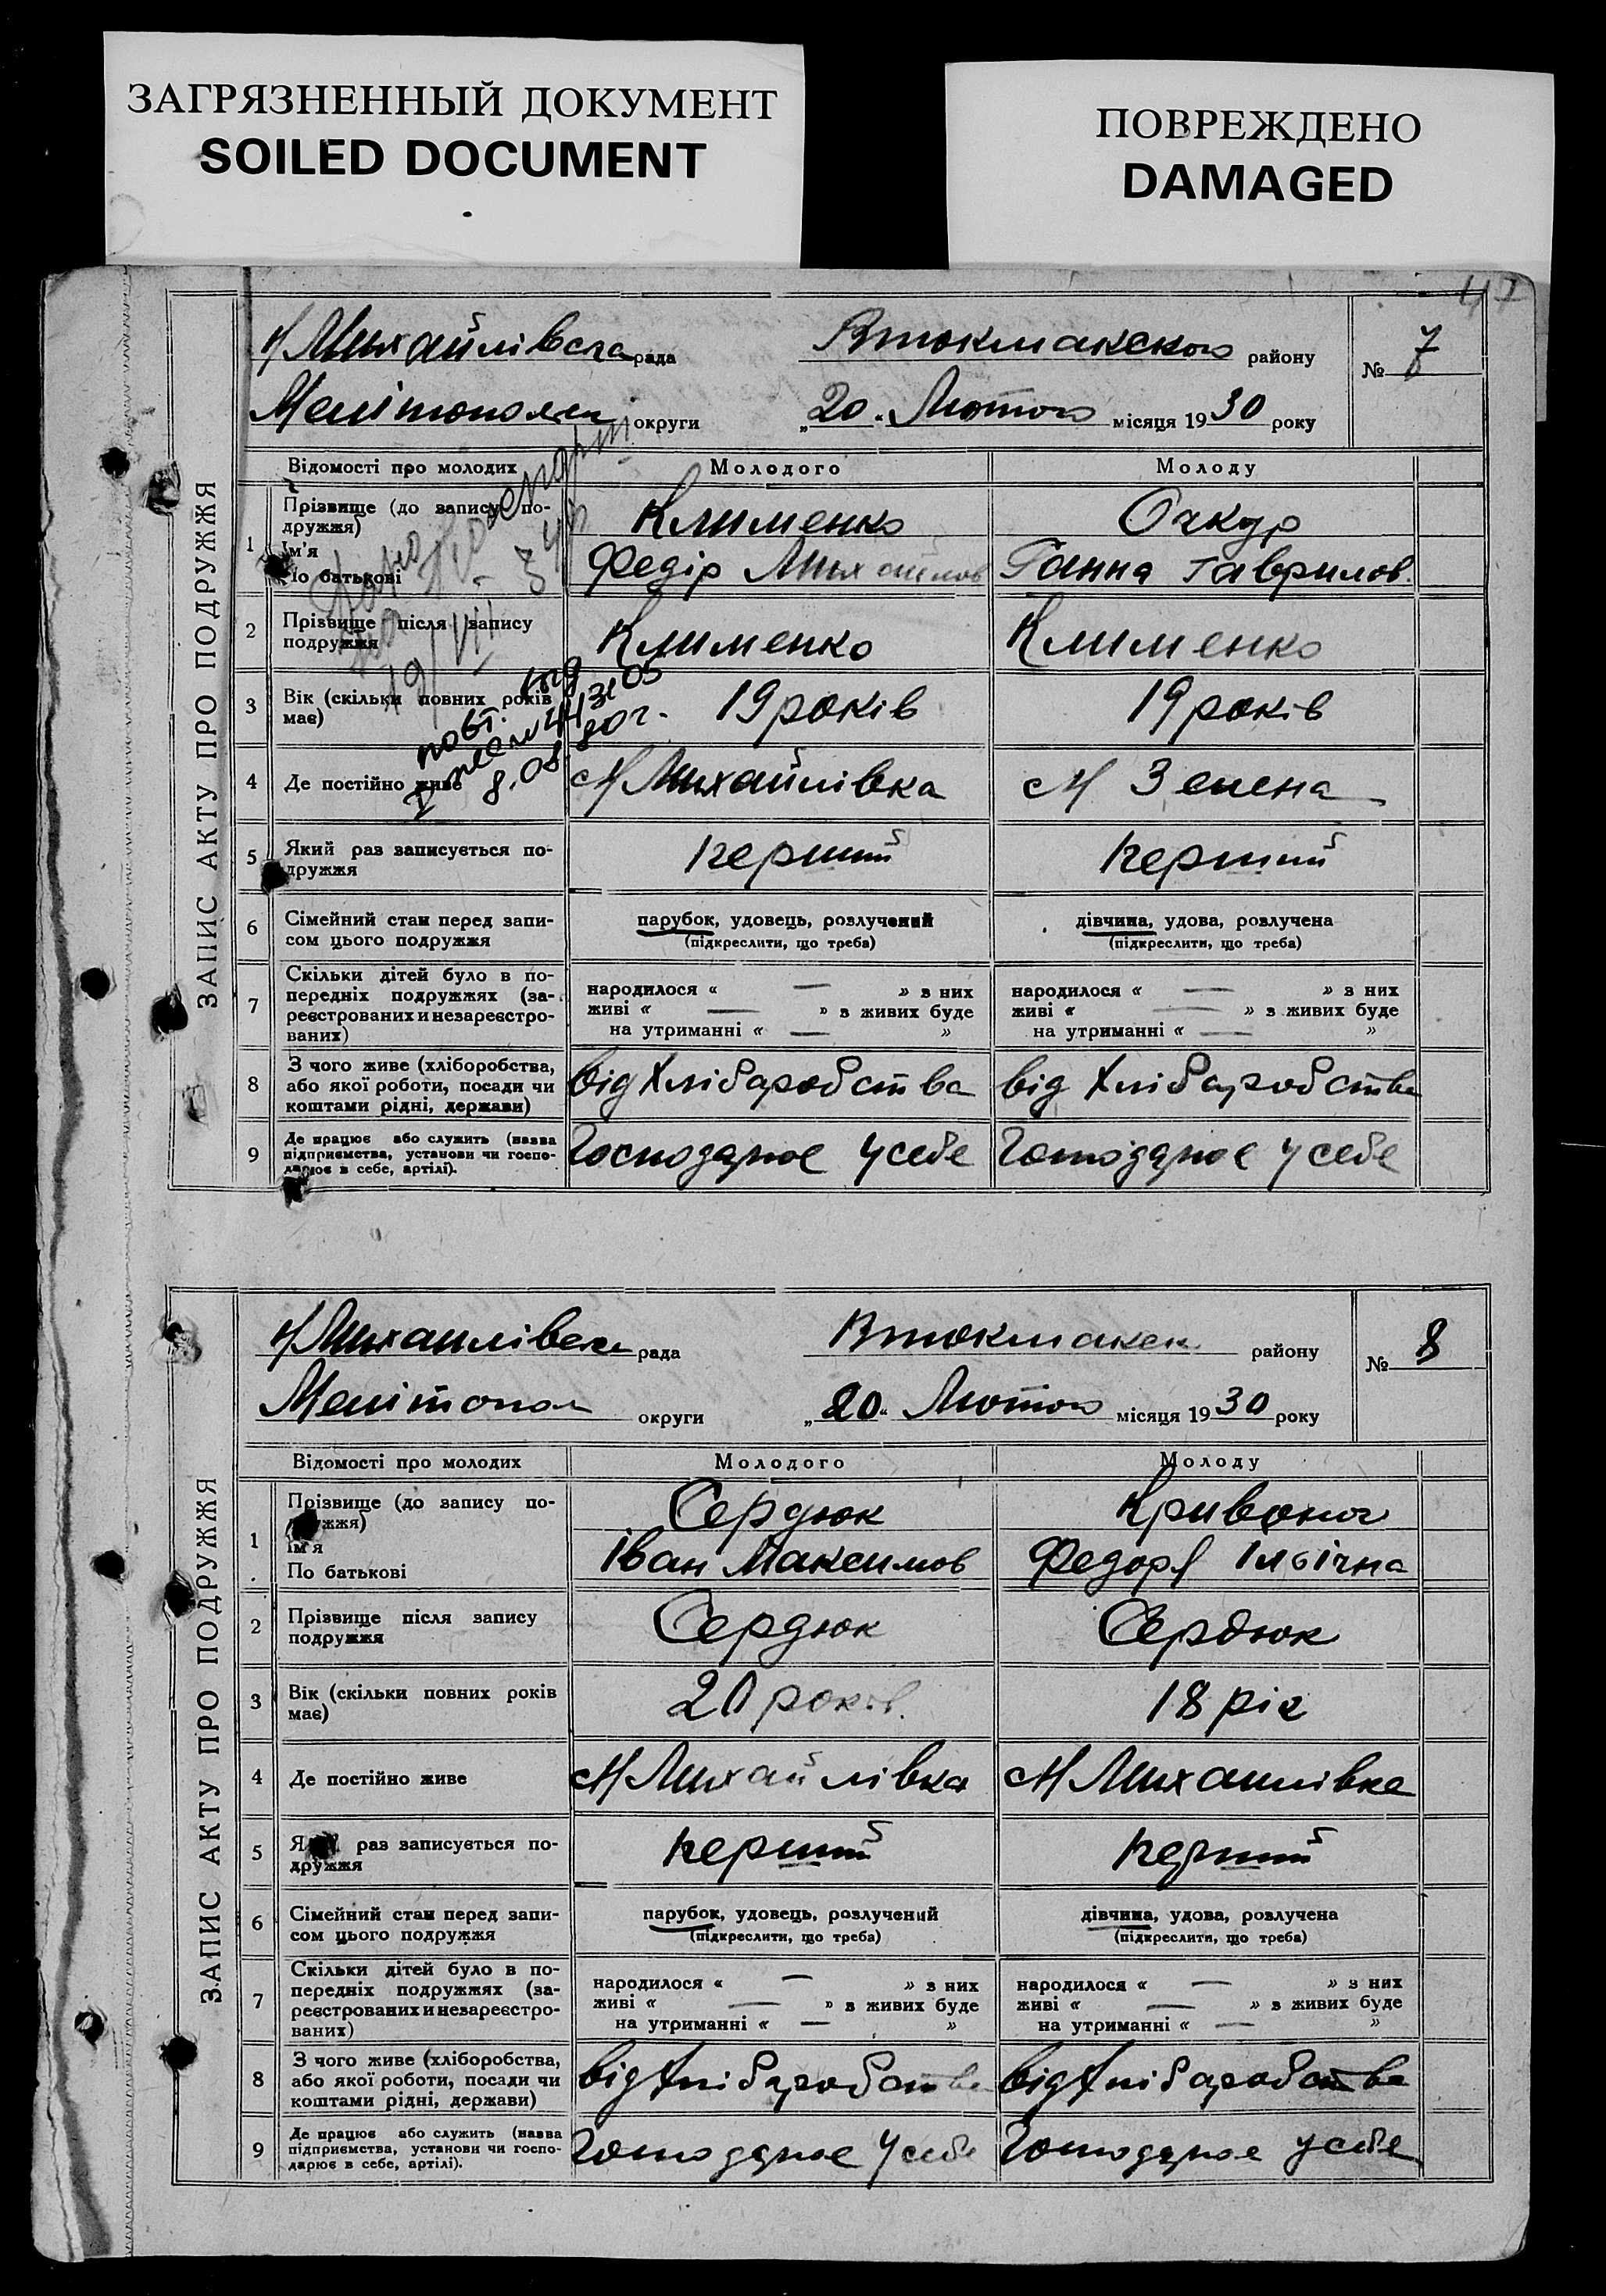 ЗАГРЯЗНЕННЫЙ ДОКУМЕНТ
SOILED DOCUMENT
ПОВРЕЖДЕНО
DAMAGED
ЗАПИС АКТУ ПРО ПОДРУЖЖЯ
рада
району
№ 7
округи „20“ Лютого місяця 1930 року
Відомості про молодих Молодого Молоду
1 Прізвище (до запису по-
дружжя)
Ім'я
По батькові
Клименко Очкур
Федір Михайлов Ганна Гаврилов.
2 Прізвище після запису
подружжя
Клименко Клименко
3 Вік (скільки повних років
має)
19 років 19 років
8.08.80 г.
4 Де постійно живе М Михайлівка М Зелена
5 Який раз записується по-
дружжя
перший перший
6 Сімейний стан перед запи-
сом цього подружжя
парубок, удовець, розлучений
(підкреслити, що треба)
дівчина, удова, розлучена
(підкреслити, що треба)
7 Скільки дітей було в по-
передніх подружжях (за-
реєстрованих и незареєстро-
ваних)
народилося « — » з них
живі « — » з живих буде
на утриманні « — »
народилося « — » з них
живі « — » з живих буде
на утриманні « — »
8 З чого живе (хліборобства,
або якої роботи, посади чи
коштами рідні, держави)
від Хлібаробства від Хлібаробства
9 Де працює або служить (назва
підприємства, установи чи госпо-
дарює в себе, артілі).
Господарює у себе Господарює у себе
ЗАПИС АКТУ ПРО ПОДРУЖЖЯ
рада
району
№ 8
Мелітопол округи „20“ Лютого місяця 1930 року
Відомості про молодих Молодого Молоду
1 Прізвище (до запису по-
дружжя)
Ім'я
По батькові
Сердюк
Іван Максимов Ілвічна
2 Прізвище після запису
подружжя
Сердюк Сердюк
3 Вік (скільки повних років
має)
20 років. 18 рік
4 Де постійно живе М Михайлівка М Михаилівка
5 Який раз записується по-
дружжя
перший перший
6 Сімейний стан перед запи-
сом цього подружжя
парубок, удовець, розлучений
(підкреслити, що треба)
дівчина, удова, розлучена
(підкреслити, що треба)
7 Скільки дітей було в по-
передніх подружжях (за-
реєстрованих и незареєстро-
ваних)
народилося « — » з них
живі « — » з живих буде
на утриманні « — »
народилося « — » з них
живі « — » з живих буде
на утриманні « — »
8 З чого живе (хліборобства,
або якої роботи, посади чи
коштами рідні, держави)
від Хлібаробства від Хлібаробства
9 Де працює або служить (назва
підприємства, установи чи госпо-
дарює в себе, артілі).
Господарює у себе Господарює у себе